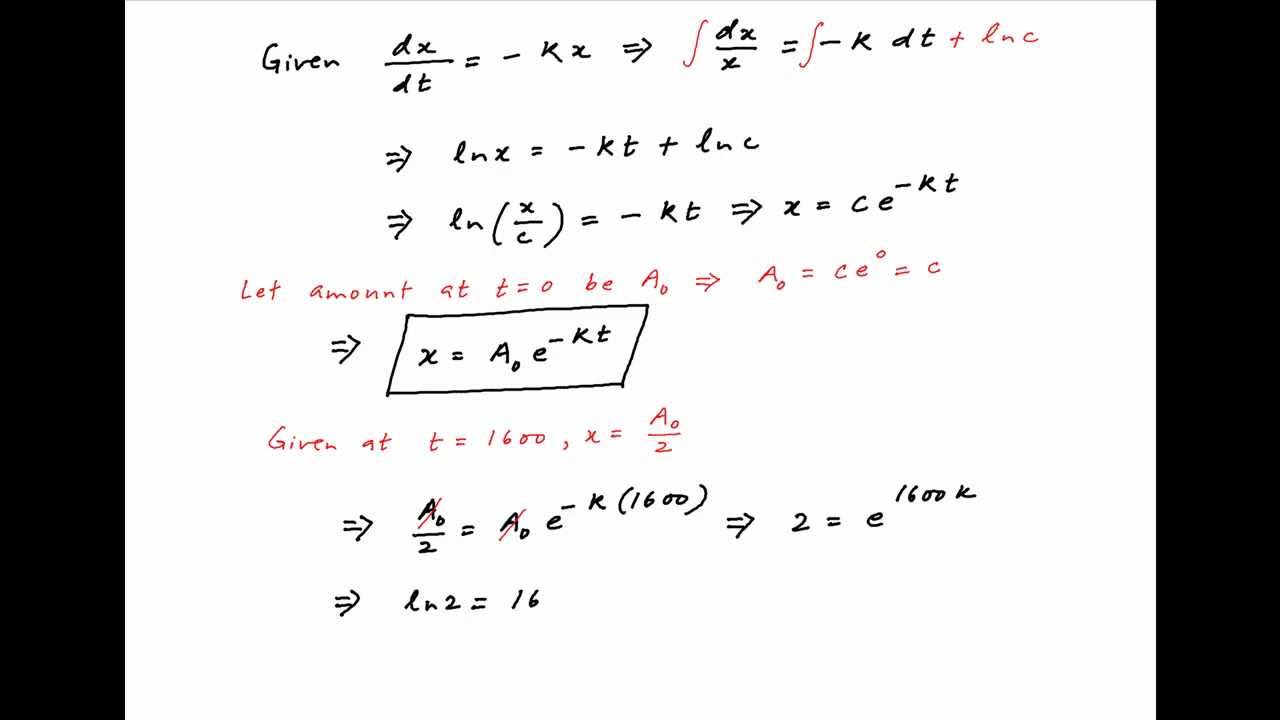 Given dx/dt = - kx ⇒ ∫ dx/x = ∫ - k dt + ln c
⇒ ln x = - kt + ln c
⇒ ln (x/c) = - kt ⇒ x = c e^(-kt)
Let amount at t = 0 be A₀ ⇒ A₀ = c e⁰ = c
⇒ x = A₀ e^(-kt)
Given at t = 1600, x = A₀/2
⇒ A₀/2 = A₀ e^(-k(1600)) ⇒ 2 = e^(1600k)
⇒ ln 2 = 16